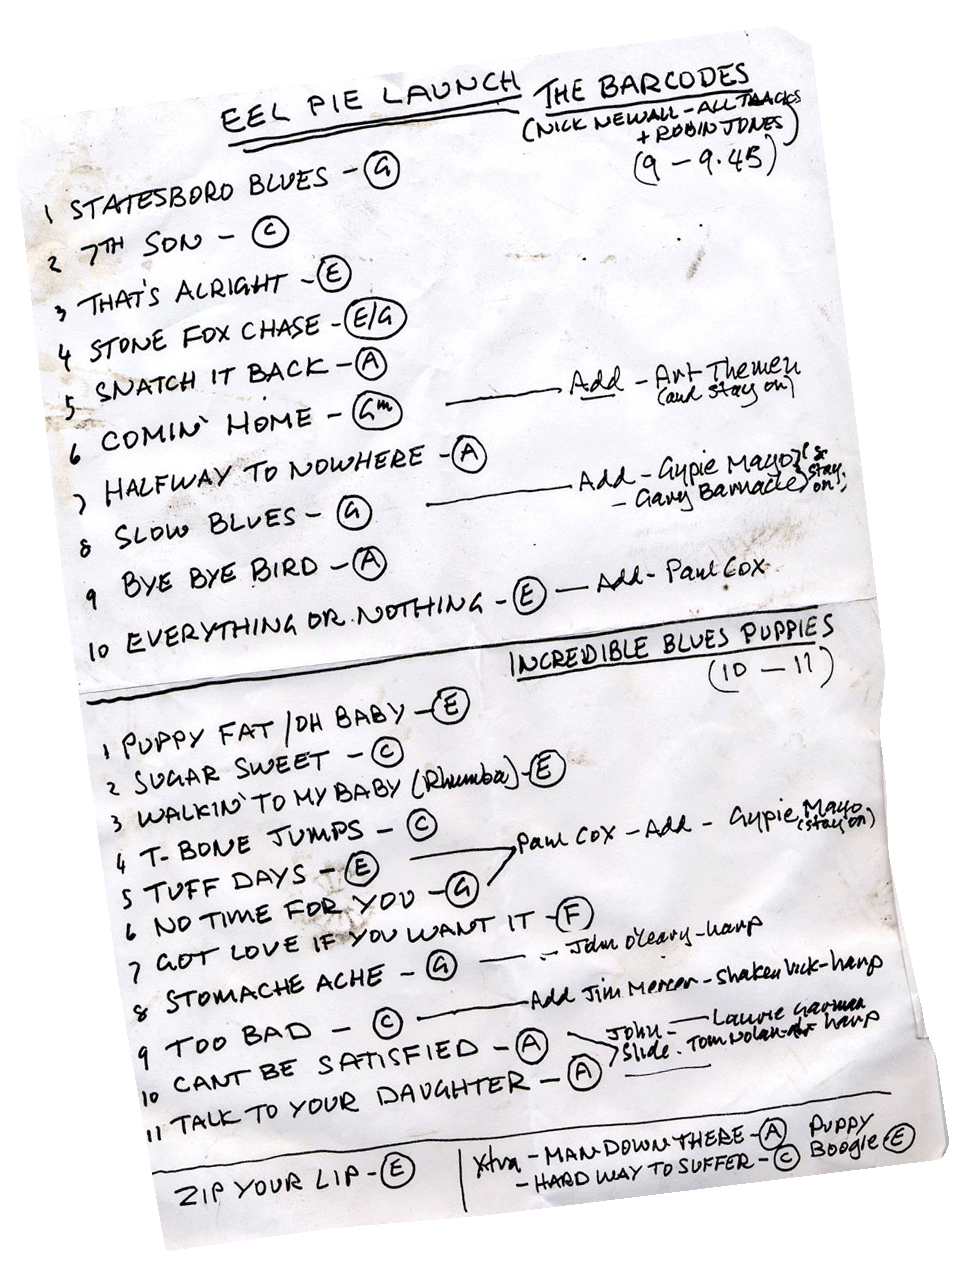 EEL PIE LAUNCH THE BARCODES
(NICK NEWALL - ALL TRACKS
+ ROBIN JONES)
(9 - 9.45)
1 STATESBORO BLUES - G
2 7TH SON - C
3 THAT'S ALRIGHT - E
4 STONE FOX CHASE - E/G
5 SNATCH IT BACK - A
Add - Art Themen
(and stay on)
6 COMIN' HOME - Gm
7 HALFWAY TO NOWHERE - A
Add - Gypie Mayo } (&
- Gary Barnacle } stay
on)
8 SLOW BLUES - G
9 BYE BYE BIRD - A
10 EVERYTHING OR NOTHING - E - Add - Paul Cox
INCREDIBLE BLUES PUPPIES
(10 - 11)
1 PUPPY FAT / OH BABY - E
2 SUGAR SWEET - C
3 WALKIN' TO MY BABY (Rhumba) - E
4 T-BONE JUMPS - C
Paul Cox - Add - Gypie Mayo
(stay on)
5 TUFF DAYS - E
6 NO TIME FOR YOU - G
7 GOT LOVE IF YOU WANT IT - F
8 STOMACHE ACHE - G - John O'Leary - harp
9 TOO BAD - C - Add Jim Mercer - Shakey Vick - harp
10 CANT BE SATISFIED - A
John - Laurie Garman
Slide. Tom Nolan harp
11 TALK TO YOUR DAUGHTER - A
ZIP YOUR LIP - E
Xtra - MAN DOWN THERE - A PUPPY
- HARD WAY TO SUFFER - C Boogie E